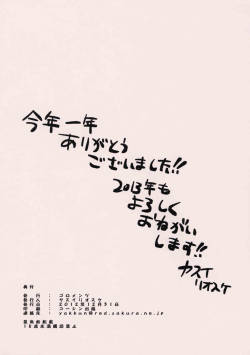 今年一年
ありがとう
ございました!!
2013年も
よろしく
おねがい
します!!
ヤスイ
リオスケ
奥付
発行 : ゴロメンツ
発行人 : ヤスイリオスケ
発行日 : 2012年12月31日
印刷 : コーシン出版